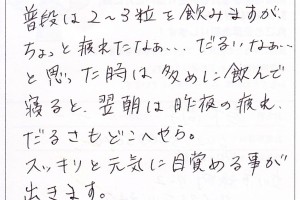 普段は2~3粒を飲みますが、
ちょっと疲れたなぁ…だるいなぁ…
と思った時は多めに飲んで
寝ると、翌朝は昨夜の疲れ、
だるさもどこへやら。
スッキリと元気に目覚める事が
出きます。